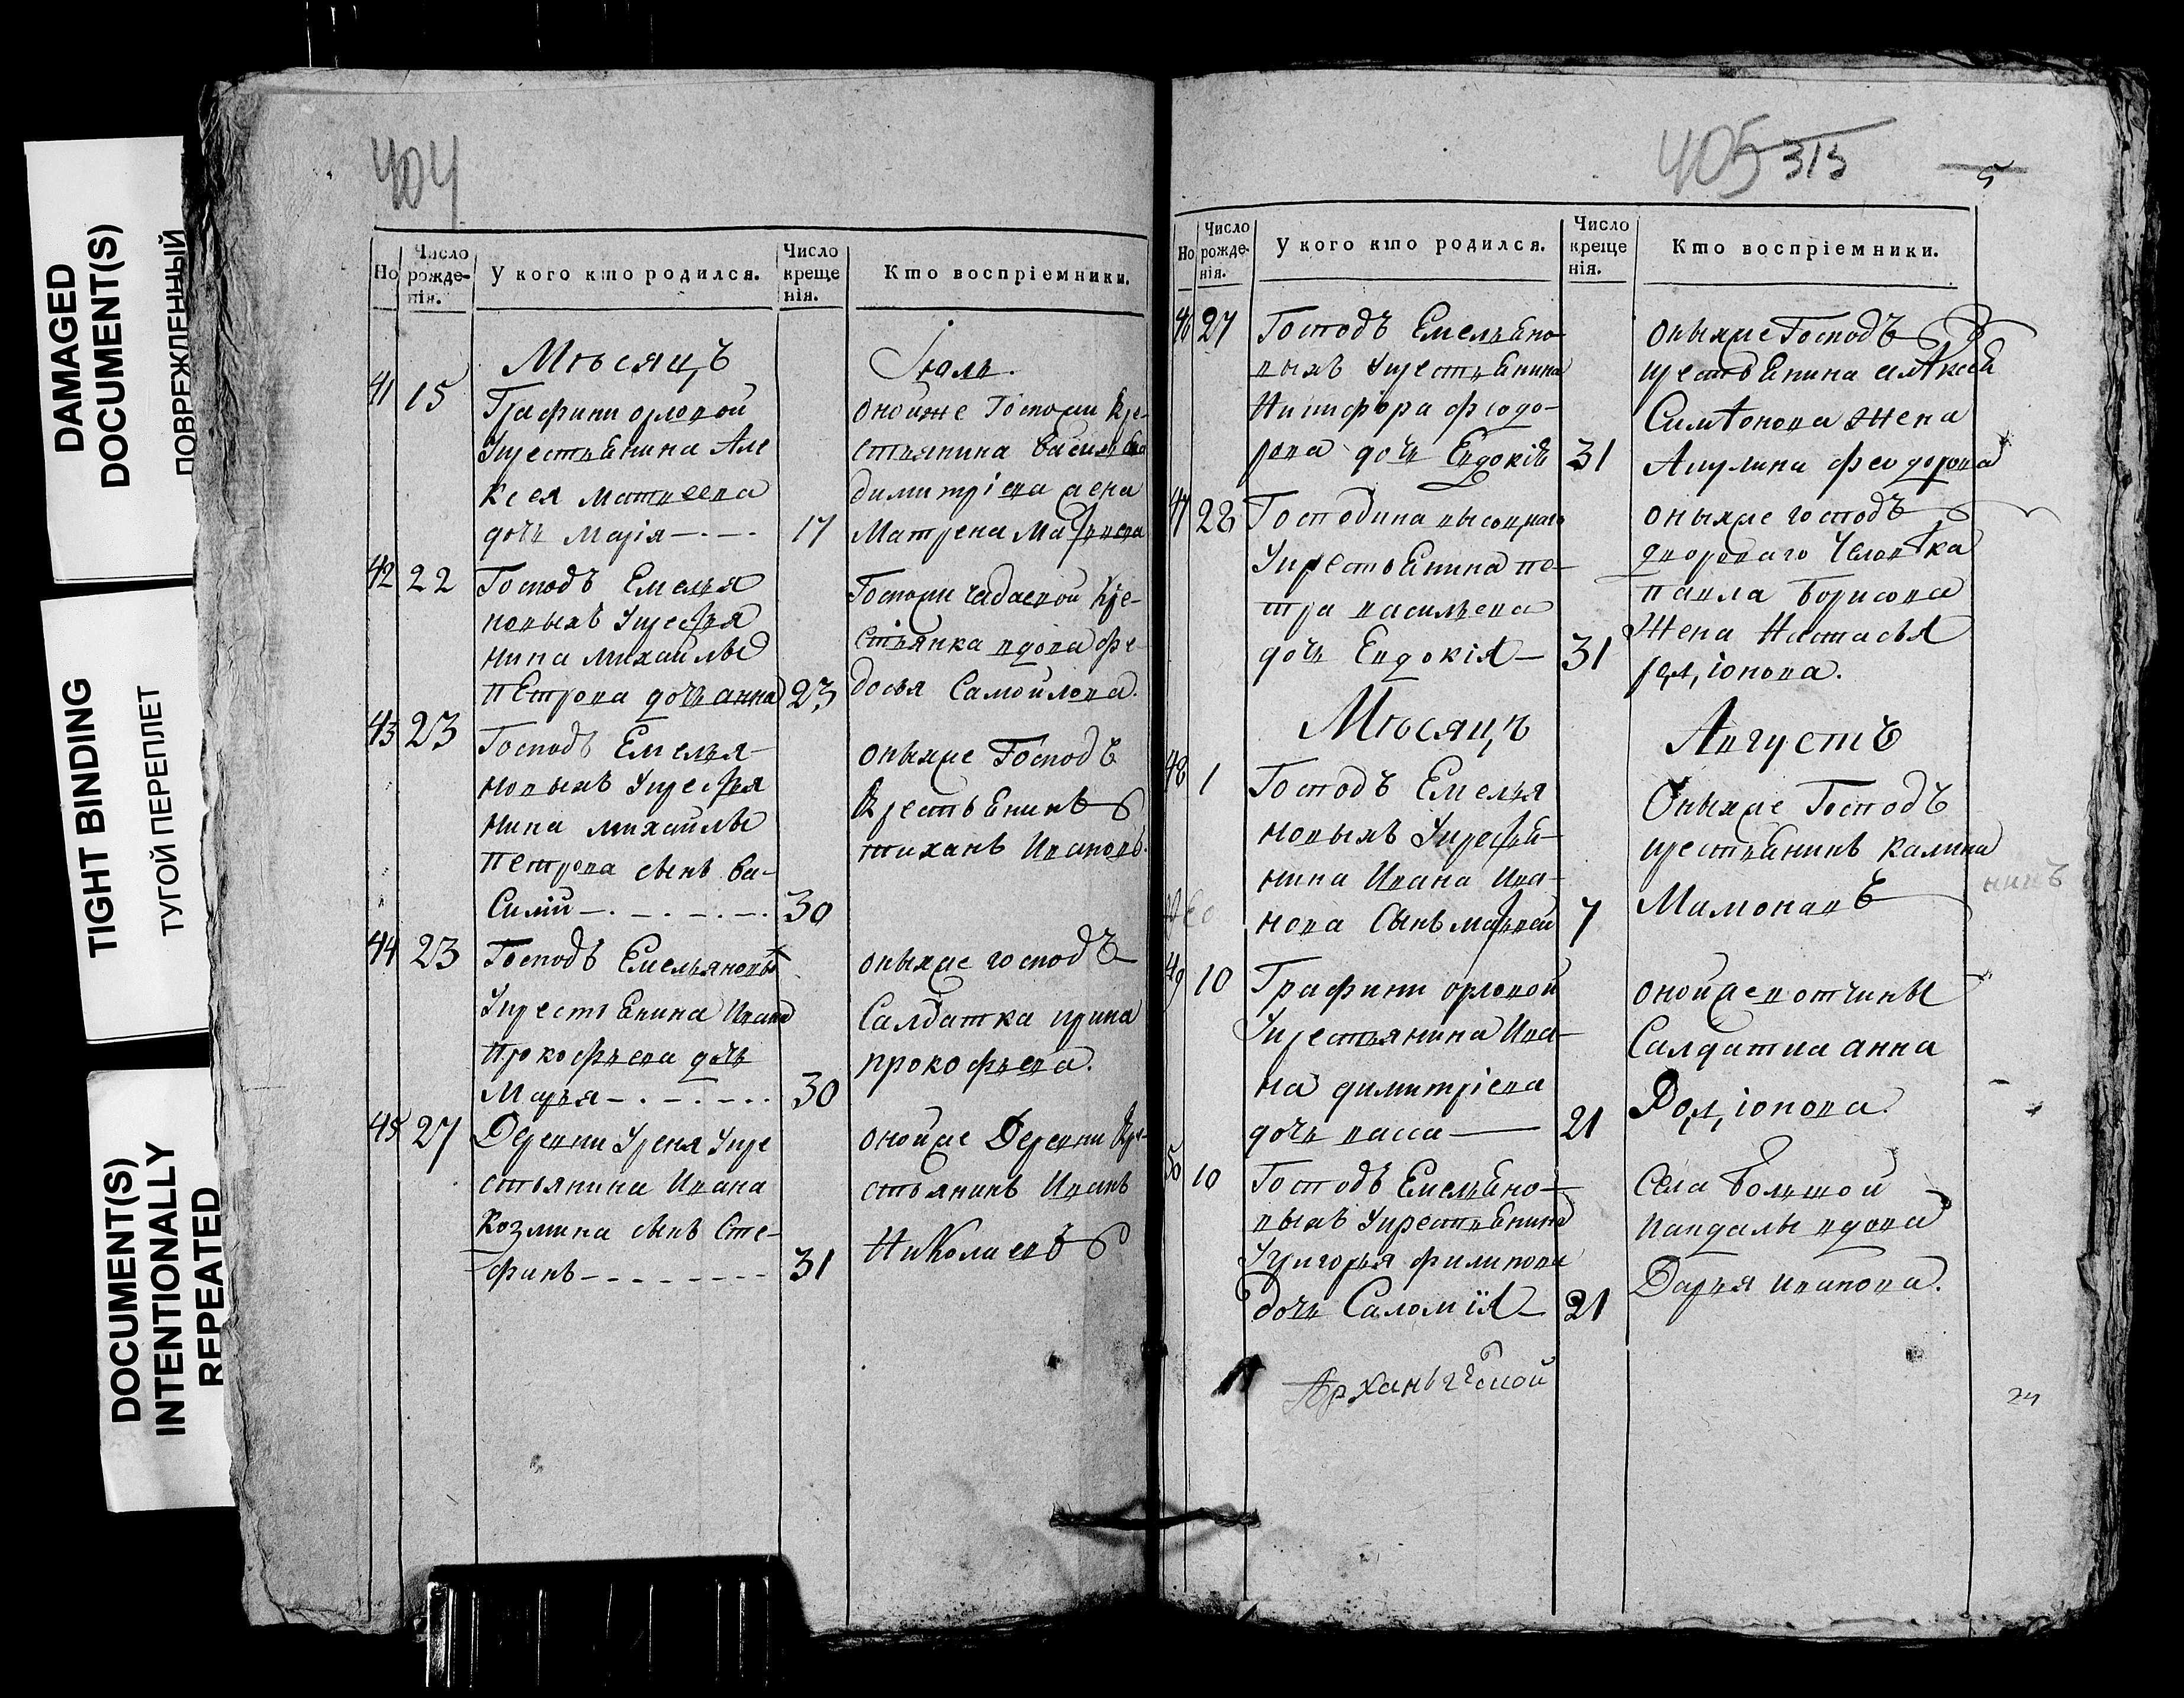 DAMAGED
DOCUMENT(S)
ПОВРЕЖДЕННЫЙ
TIGHT BINDING
ТУГОЙ ПЕРЕПЛЕТ
DOCUMENT(S)
INTENTIONALLY
REPEATED
404
Но
Число рожде-нія.
У кого кто родился.
Число креще нія.
Кто воспріемники.
Мѣсяцъ
Іюль.
41 15
Графини орловой
Укрестьянина Але
ксея матвеева
дочь марія
17
оной же Госпожи кре-
стьянина василья
димитріева жена
Матрена Матвеева
42 22
Господъ Емелья
новыхъ Укрестья
нина михайлы
петрова дочь анна
23
Госпожи чадаевой кре-
стьянка вдова фе-
досья Самойлова.
43 23
Господъ Емелья-
новыхъ Укрестья
нина михайлы
Петрова сынъ ва-
силій
30
оныхже Господъ
крестьенинъ
тиханъ Ивановъ.
44 23
Господъ Емельяновых
Укрестьенина Ивана
прокофьева дочь
Марья
30
оныхже господъ
Салдатка ирина
прокофьева.
45 27
Деревни Уреня Укре
стьянина Ивана
Козмина сынъ Сте-
фанъ
31
оной же Деревни кре-
стьянинъ Иванъ
Николаевъ
405 313
5
Но
Число рожде-нія.
У кого кто родился.
Число креще нія.
Кто воспріемники.
46 27
Господъ Емельяно-
выхъ Укрестьянина
Никифора феодо-
рова дочь Евдокія
31
оныхже Господъ
крестьянина алѣксѣя
Симѣонова жена
Акулина феодорова
47 28
Господина
Укрестьянина пе-
тра васильева
дочь Евдокія
31
оныхже господъ
двороваго человѣка
павла борисова
жена Настасья
родіонова.
Мѣсяцъ
Августъ
48 1
Господъ Емелья
новыхъ Укрестья-
нина Ивана Ива-
нова Сынъ матвей
7
Оныхже Господъ
крестьянинъ калина
Мамонавъ
49 10
Графини орловой
Укрестьянина Ива-
на димитріева
дочь васса
21
оной же вотчины
Салдатка анна
Родіонова.
50 10
Господъ Емельяно-
выхъ Укрестьянина
Григорья филипова
дочь Саломія
21
Села большой
кандалы вдова
Дарья иванова.
24